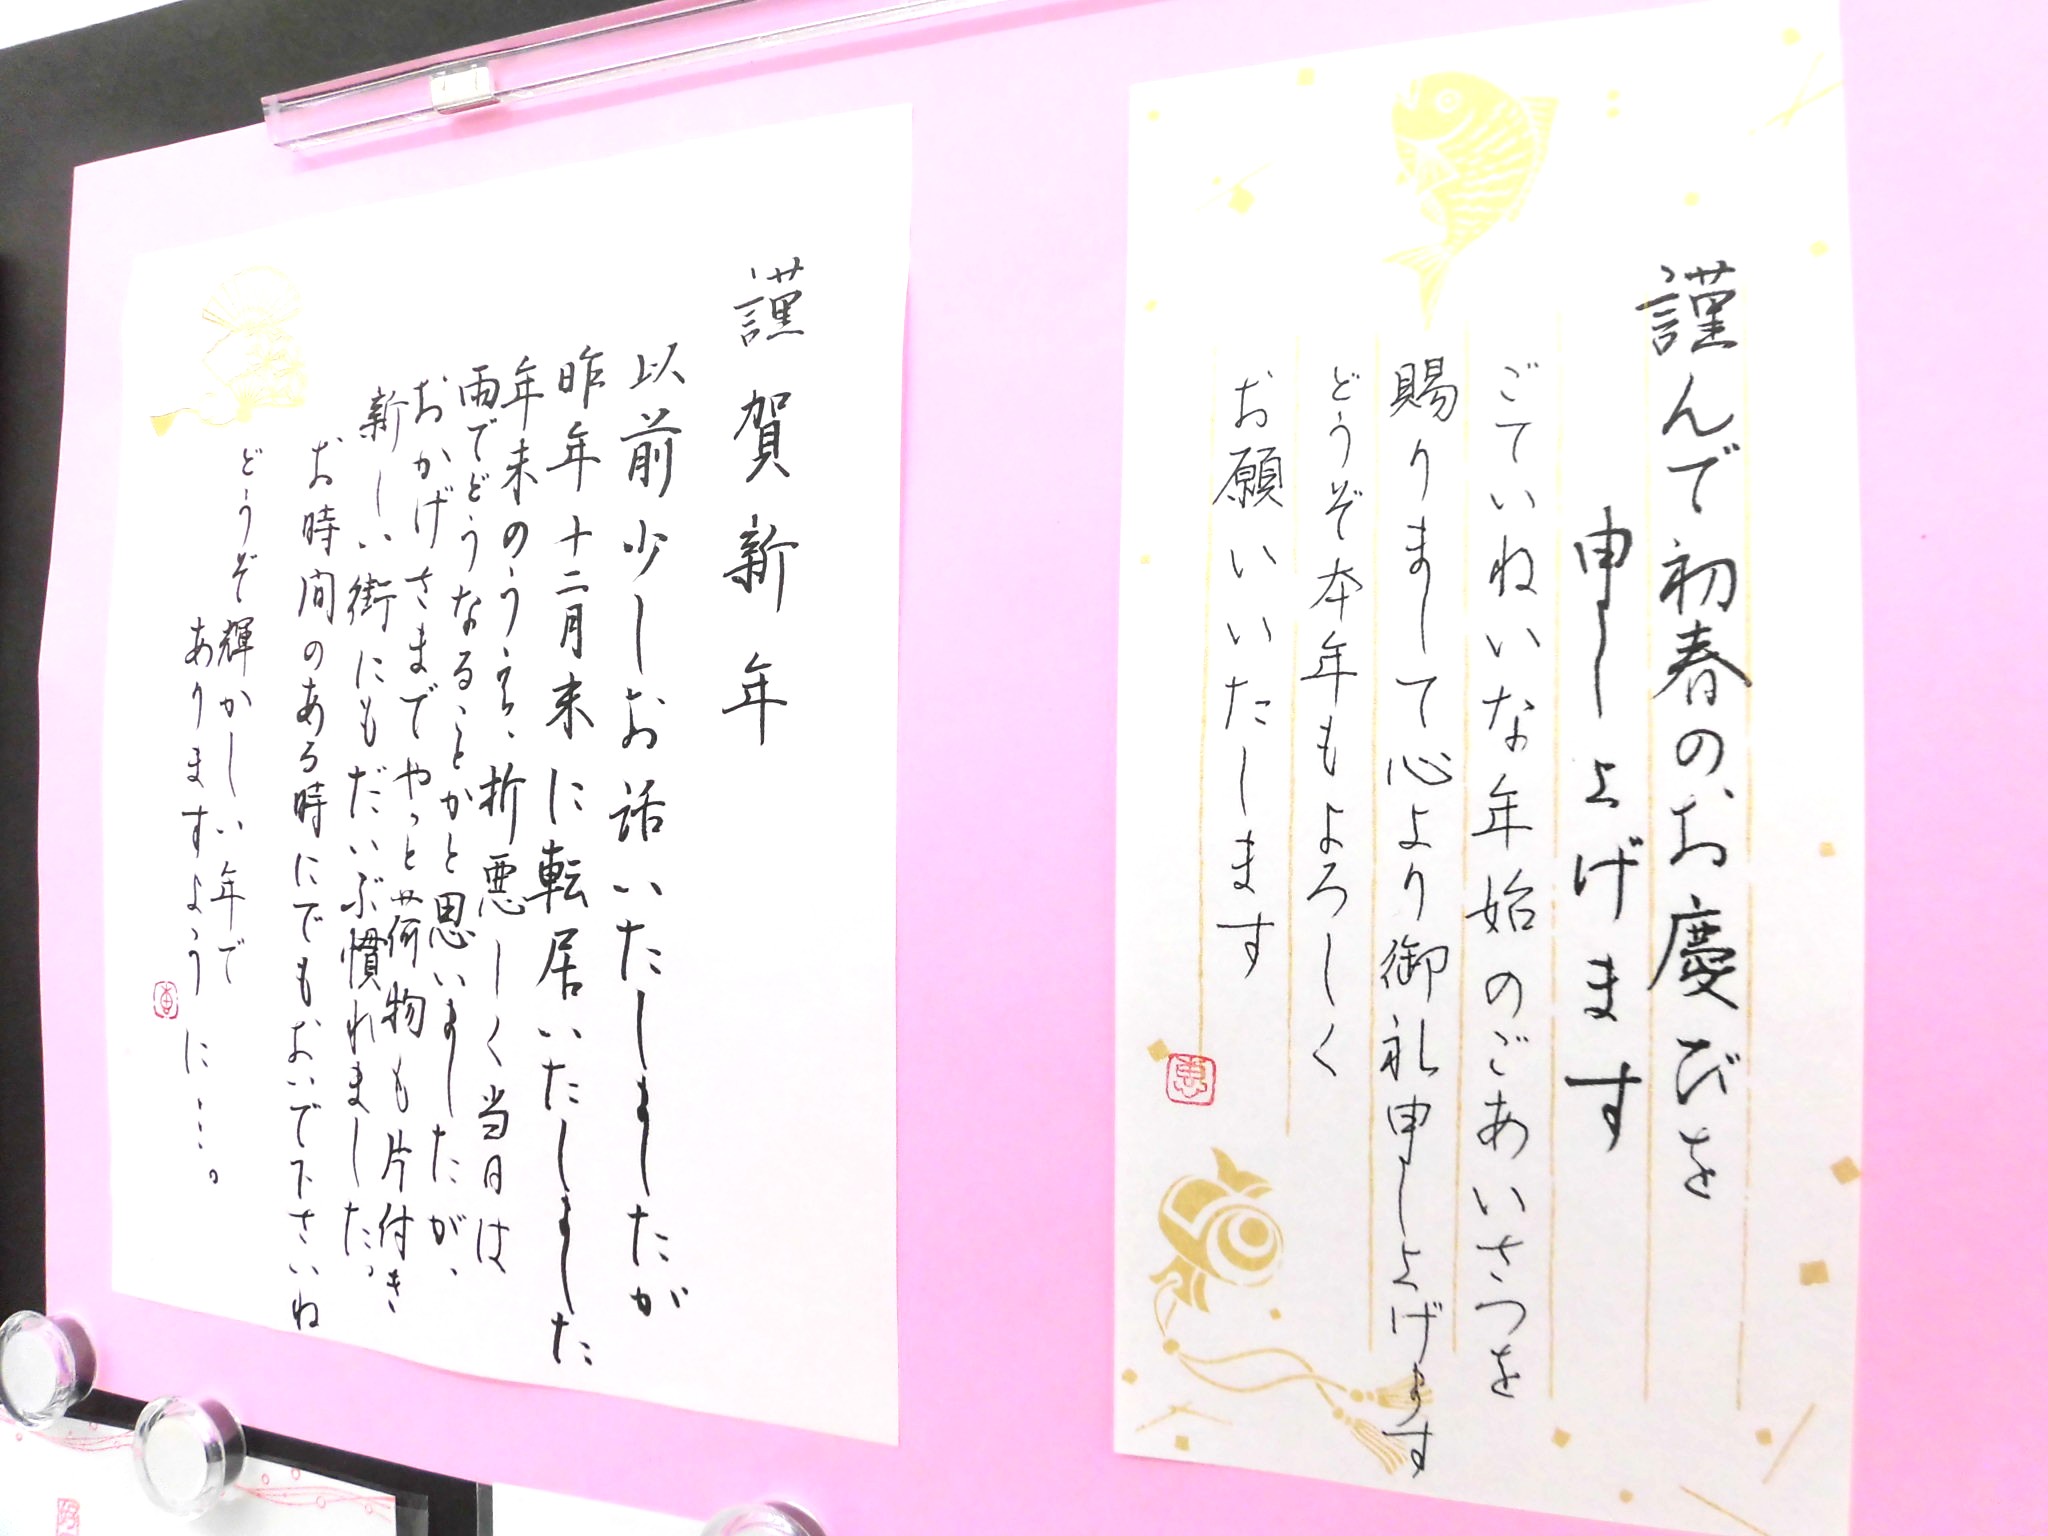 謹んで初春のお慶びを
申し上げます
ごていねいな年始のごあいさつを
賜りまして心より御礼申し上げます
どうぞ本年もよろしく
お願いいたします
恵
謹賀新年
以前少しお話いたしましたが
昨年十二月末に転居いたしました
年末のうえ、折悪しく当日は
雨でどうなることかと思いましたが、
おかげさまでやっと荷物も片付き
新しい街にもだいぶ慣れました。
お時間のある時にでもおいで下さいね
どうぞ輝かしい年で
ありますように…。